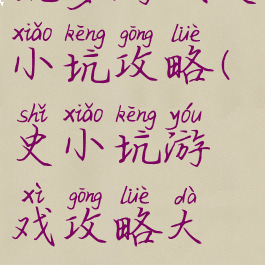 xiǎo kēng gōng lüè
小坑攻略(
shǐ xiǎo kēng yóu
史小坑游
xì gōng lüè dà
戏攻略大